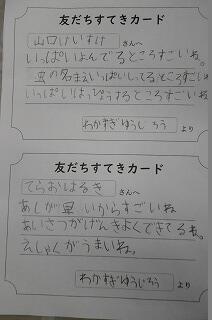 友だちすてきカード
山口けいすけ さんへ
いっぱいよんでるところすごいね。
虫の名まえいっぱいしってるところすごいね
いっぱいはっぴょうするところすごいね
わかすぎゆうじろう より
友だちすてきカード
てらおはるき さんへ
あしが早いからすごいね
あいさつがげんきよくできてるね。
えしゃくがうまいね。
わかすぎゆうじろう より